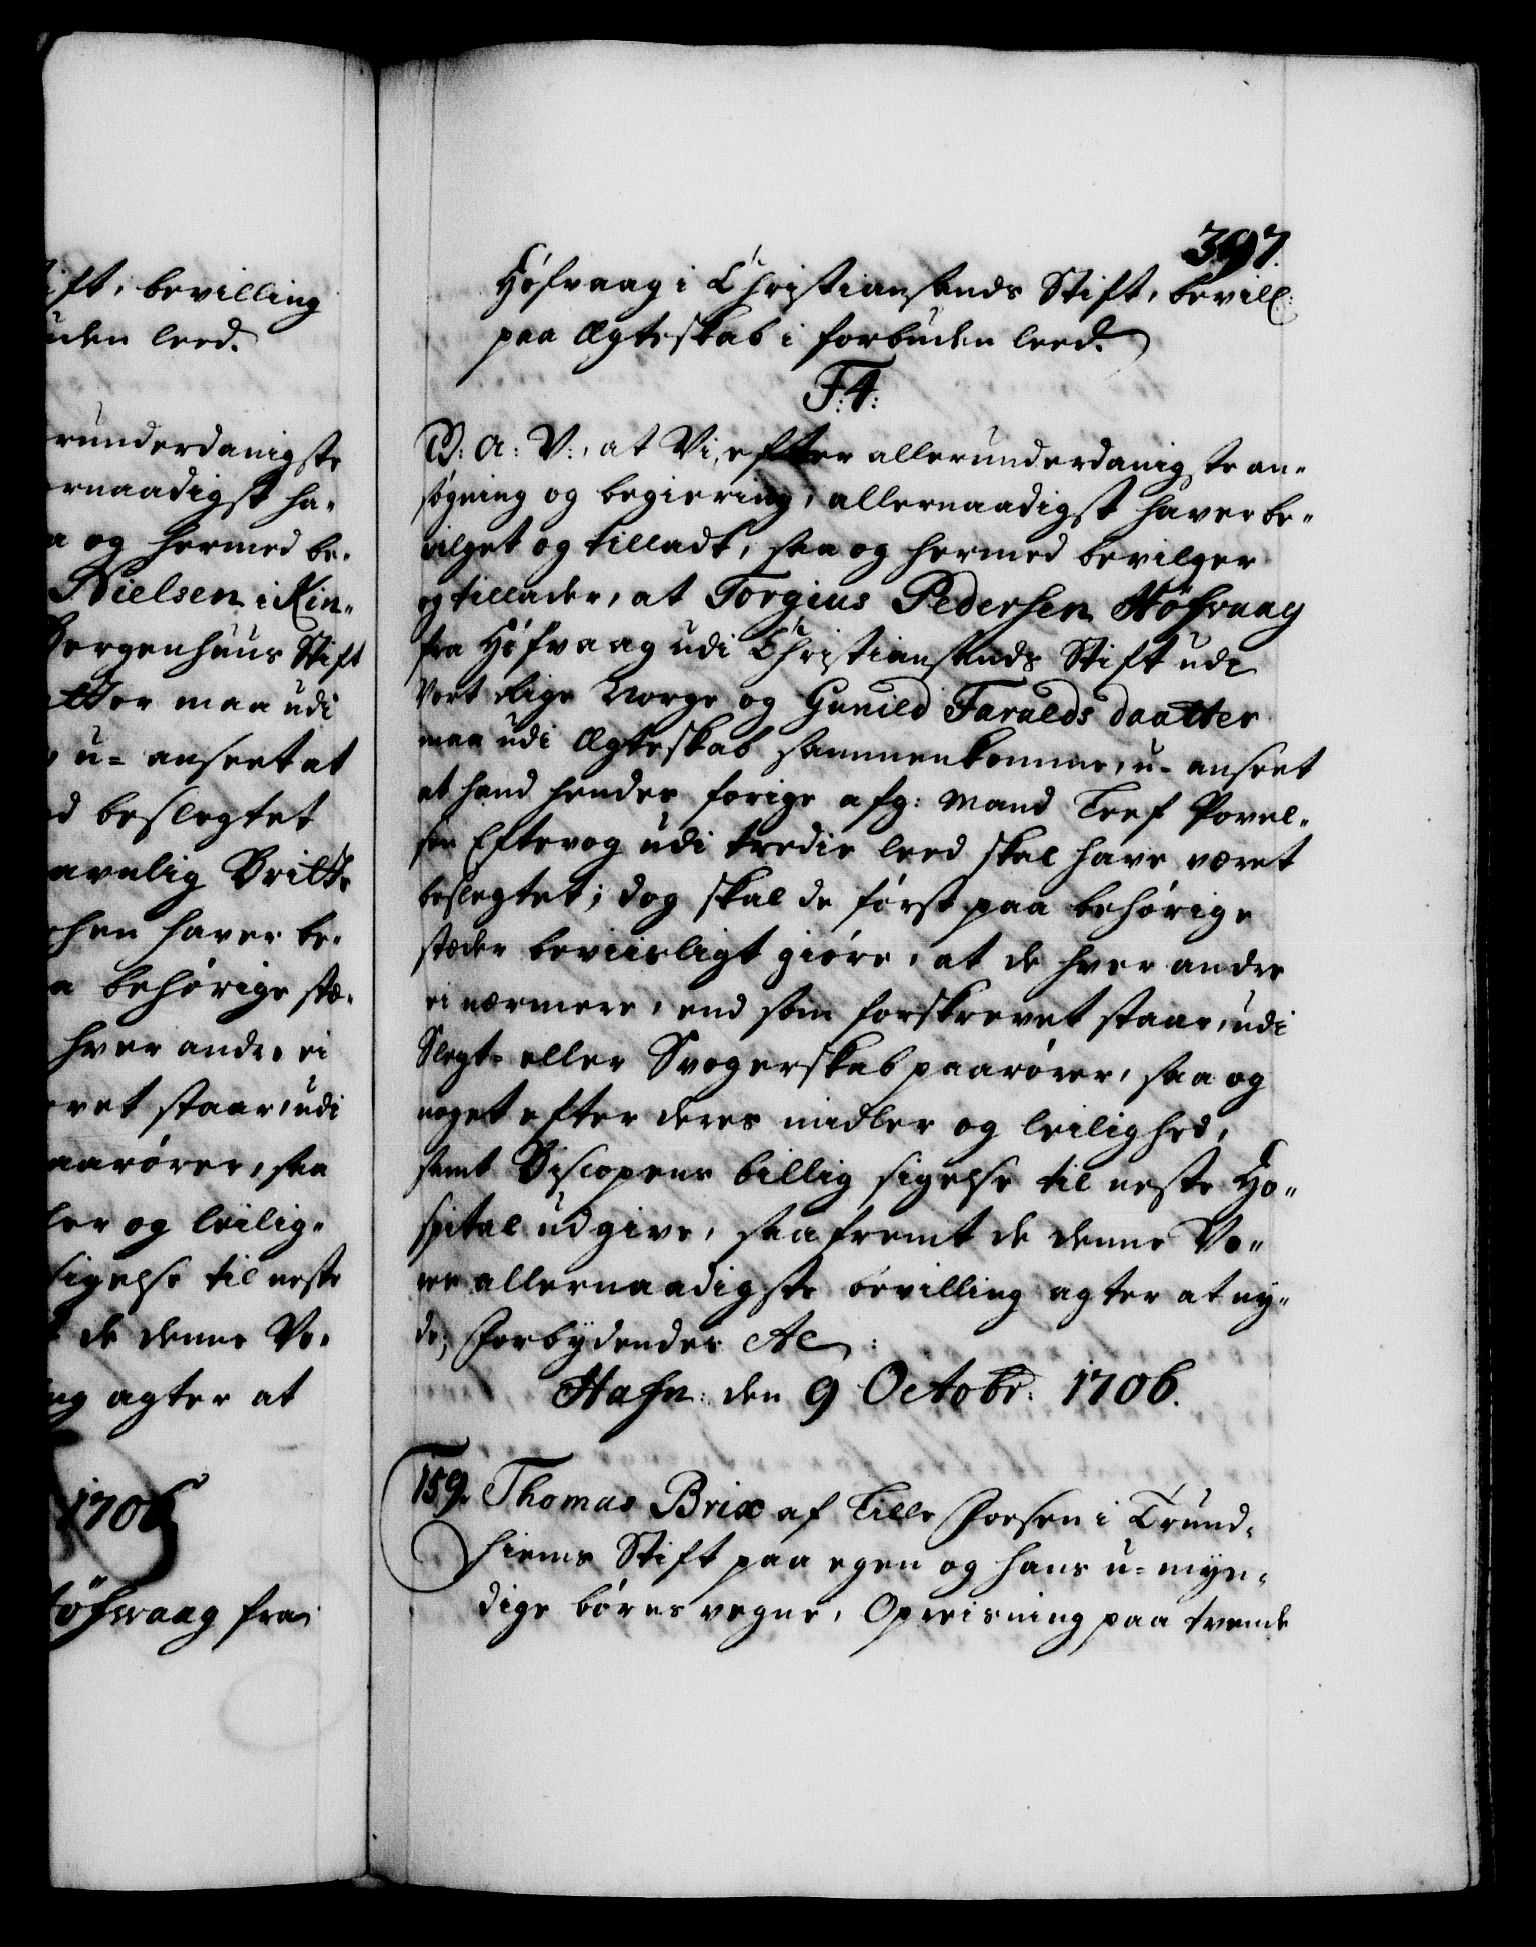 ift, bevilling
uden leed.
runderdanigste
ernaadigst ha-
a og hermed be-
Nielsen i Kin-
Bergenhuus Stift
atter maa udi
u- anseet at
d beslegtet
avnlig Britte
haver be-
a behørige stæ-
hver andre ei
evet staar, udi
aarører, saa
ler og leilig-
sigelse til neste
t de denne Vo-
ng agter at
1706
Höfwaag fra
397.
Höfvaag i Christiansands Stift, bevill:
paa Ægteskab i forbuden leed.
F: 4:
G: A: V:, at Vi, efter allerunderdanigste an-
søgning og begiering, allernaadigst haver be-
vilget og tilladt, saa og hermed bevilger
og tillader, at Torgius Pedersen Höfwaag
fra Höfvaag udi Christiansands Stift udi
Vort Rige Norge og Gunild Faralds daatter
maa udi Ægteskab sammenkomme, u- anseet
at hand hendes forige afg: Mand Teef Povel-
sen Eftevog udi tredie leed skal have været
beslegtet; dog skal de først paa behørige
stæder beviisligt giøre, at de hver andre
ei nærmere, end som forskrevet staar, udi
Slegt- eller Svogerskab paarører, saa og
noget efter deres midler og leilighed,
samt Biscopens billig sigelse til neste Ho-
spital udgive, saafremt de denne Vo-
res allernaadigste bevilling agter at ny-
de; Forbydendes Al:
Hafn: den 9 Octobr: 1706.
159. Thomas Brix af Lille Forsen i Trund-
hiems Stift paa egen og hans u- myn-
dige børns vegne, Opreisning paa tvende